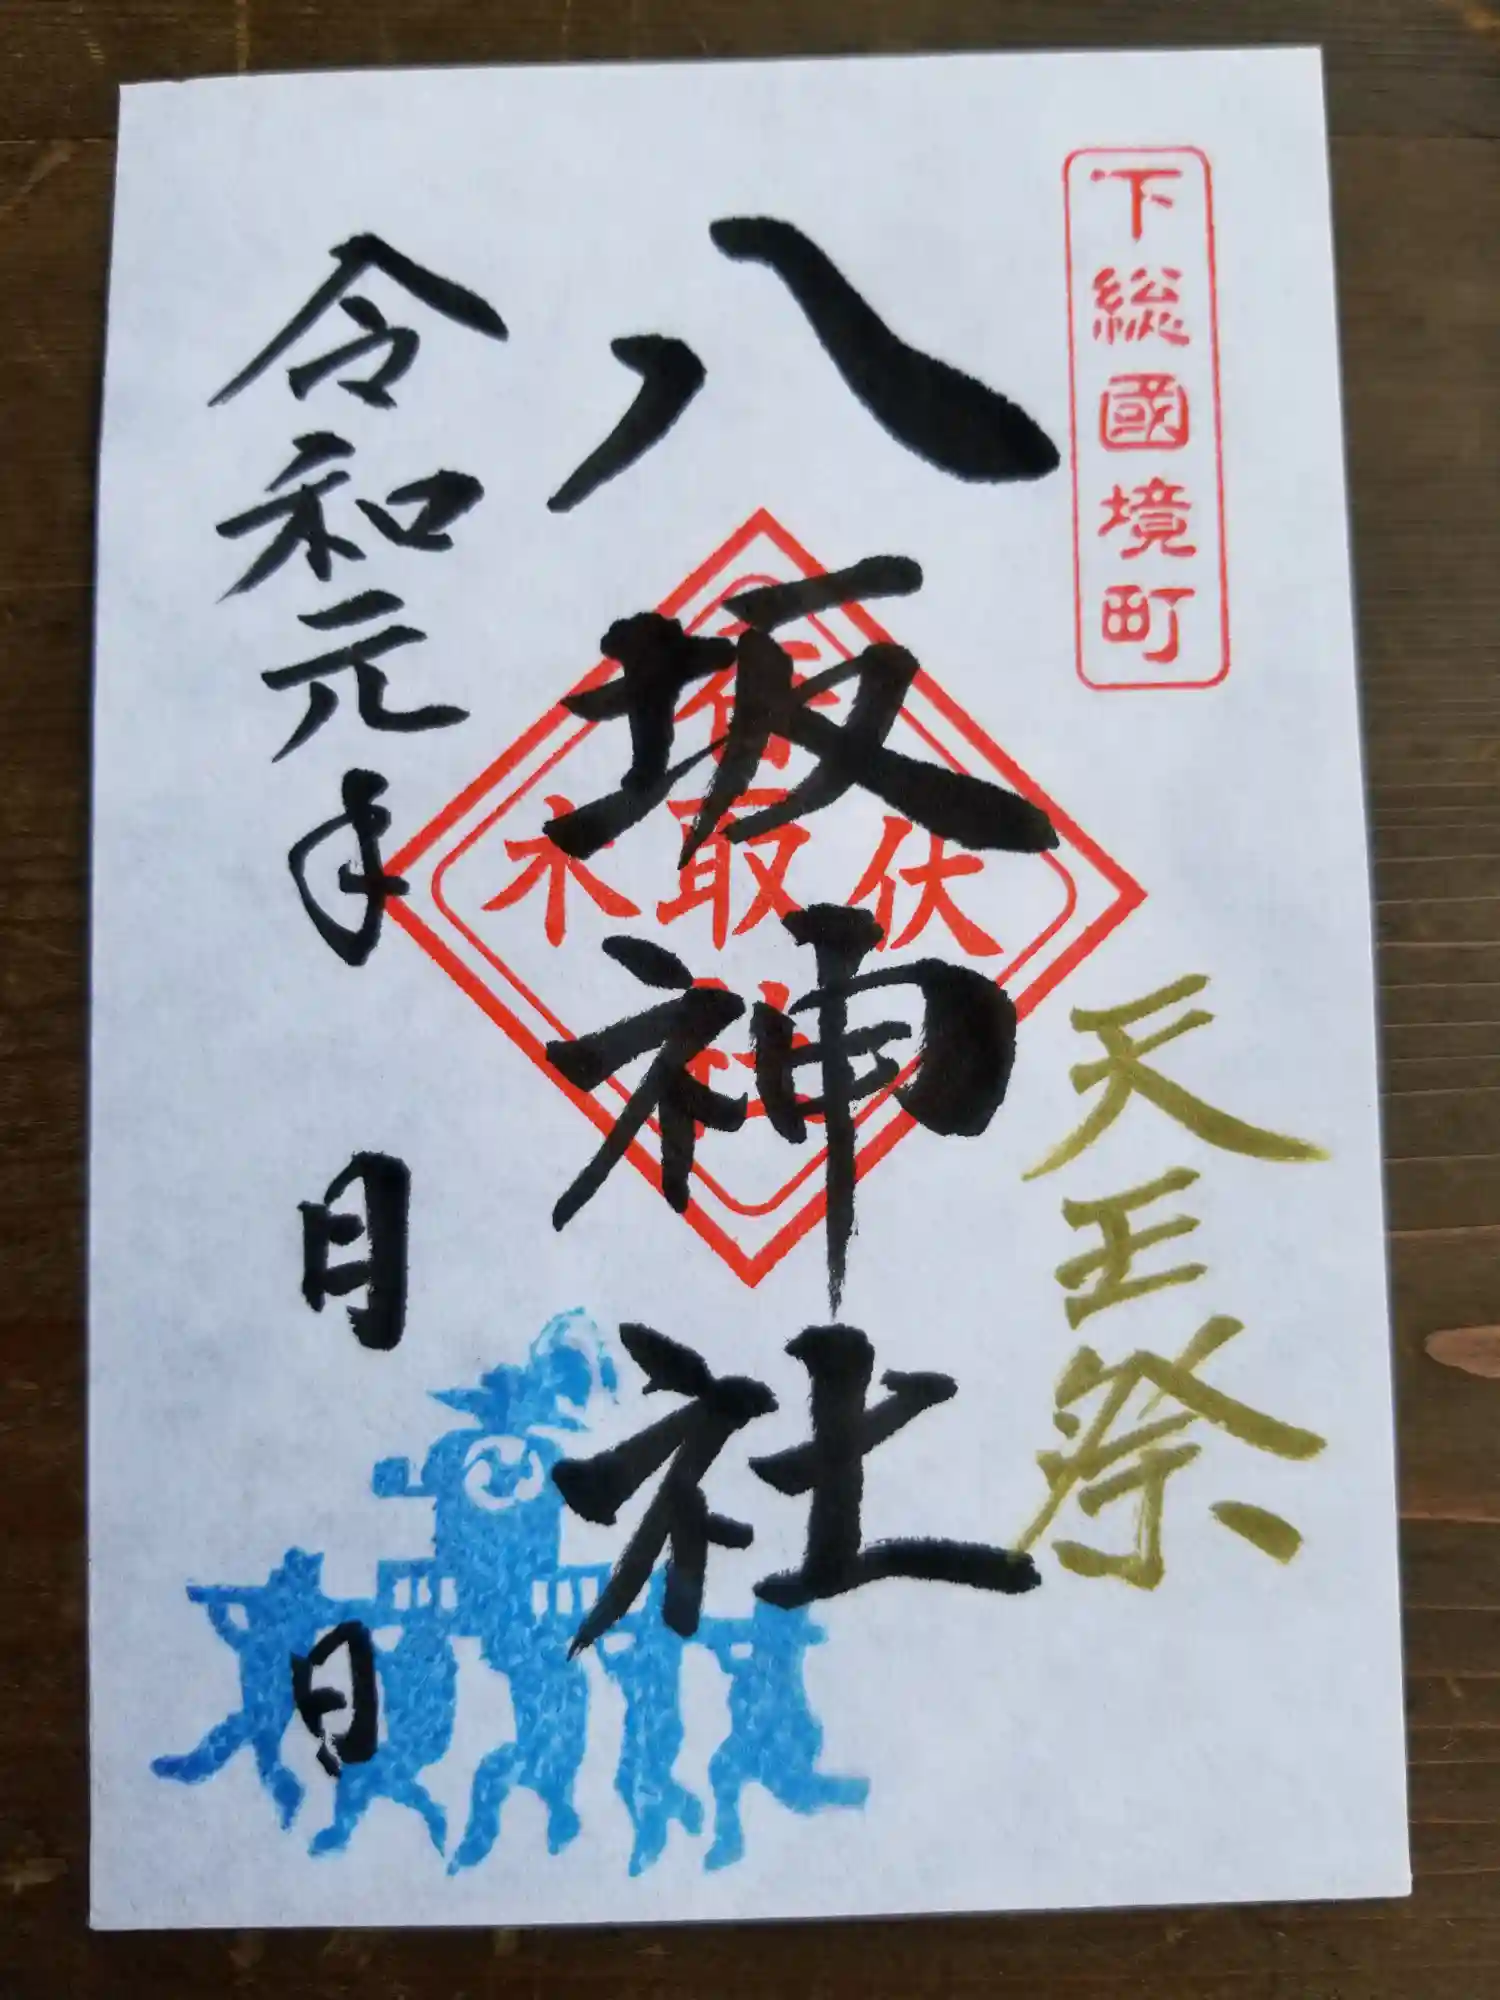 下総國境町
天王祭
八坂神社
伏
取
木
令和元年
月
日